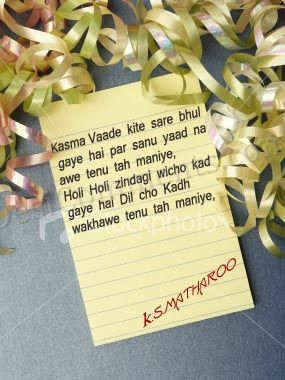 Kasma Vaade kite sare bhul
gaye hai par sanu yaad na
awe tenu tah maniye,
Holi Holi zindagi wicho kad
gaye hai Dil cho Kadh
wakhawe tenu tah maniye,
K.S.MATHAROO